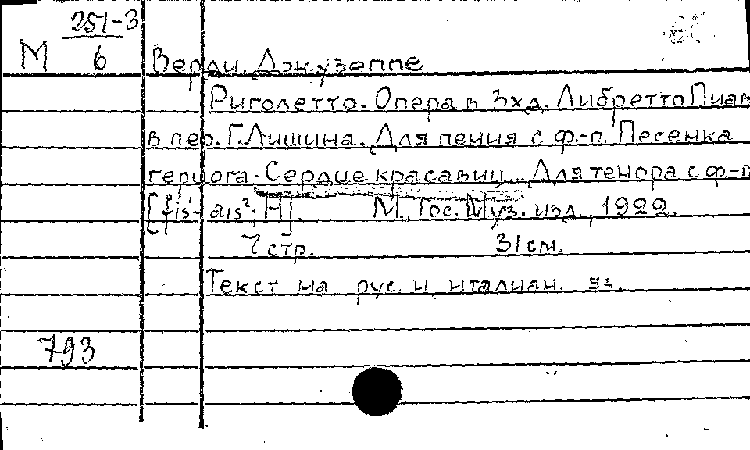 251-3
М 6 Верди, Джузеппе
Риголетто. Опера в 3хд. Либретто Пиав
в пер. Г. Лишина. Для пения с ф-п. Песенка
герцога. Сердце красавиц... Для тенора с ф-п
[fis¹-ais², H]. М., Гос. Муз. изд., 1922.
7 стр. 31 см.
Текст на рус. и италиан. яз.
793